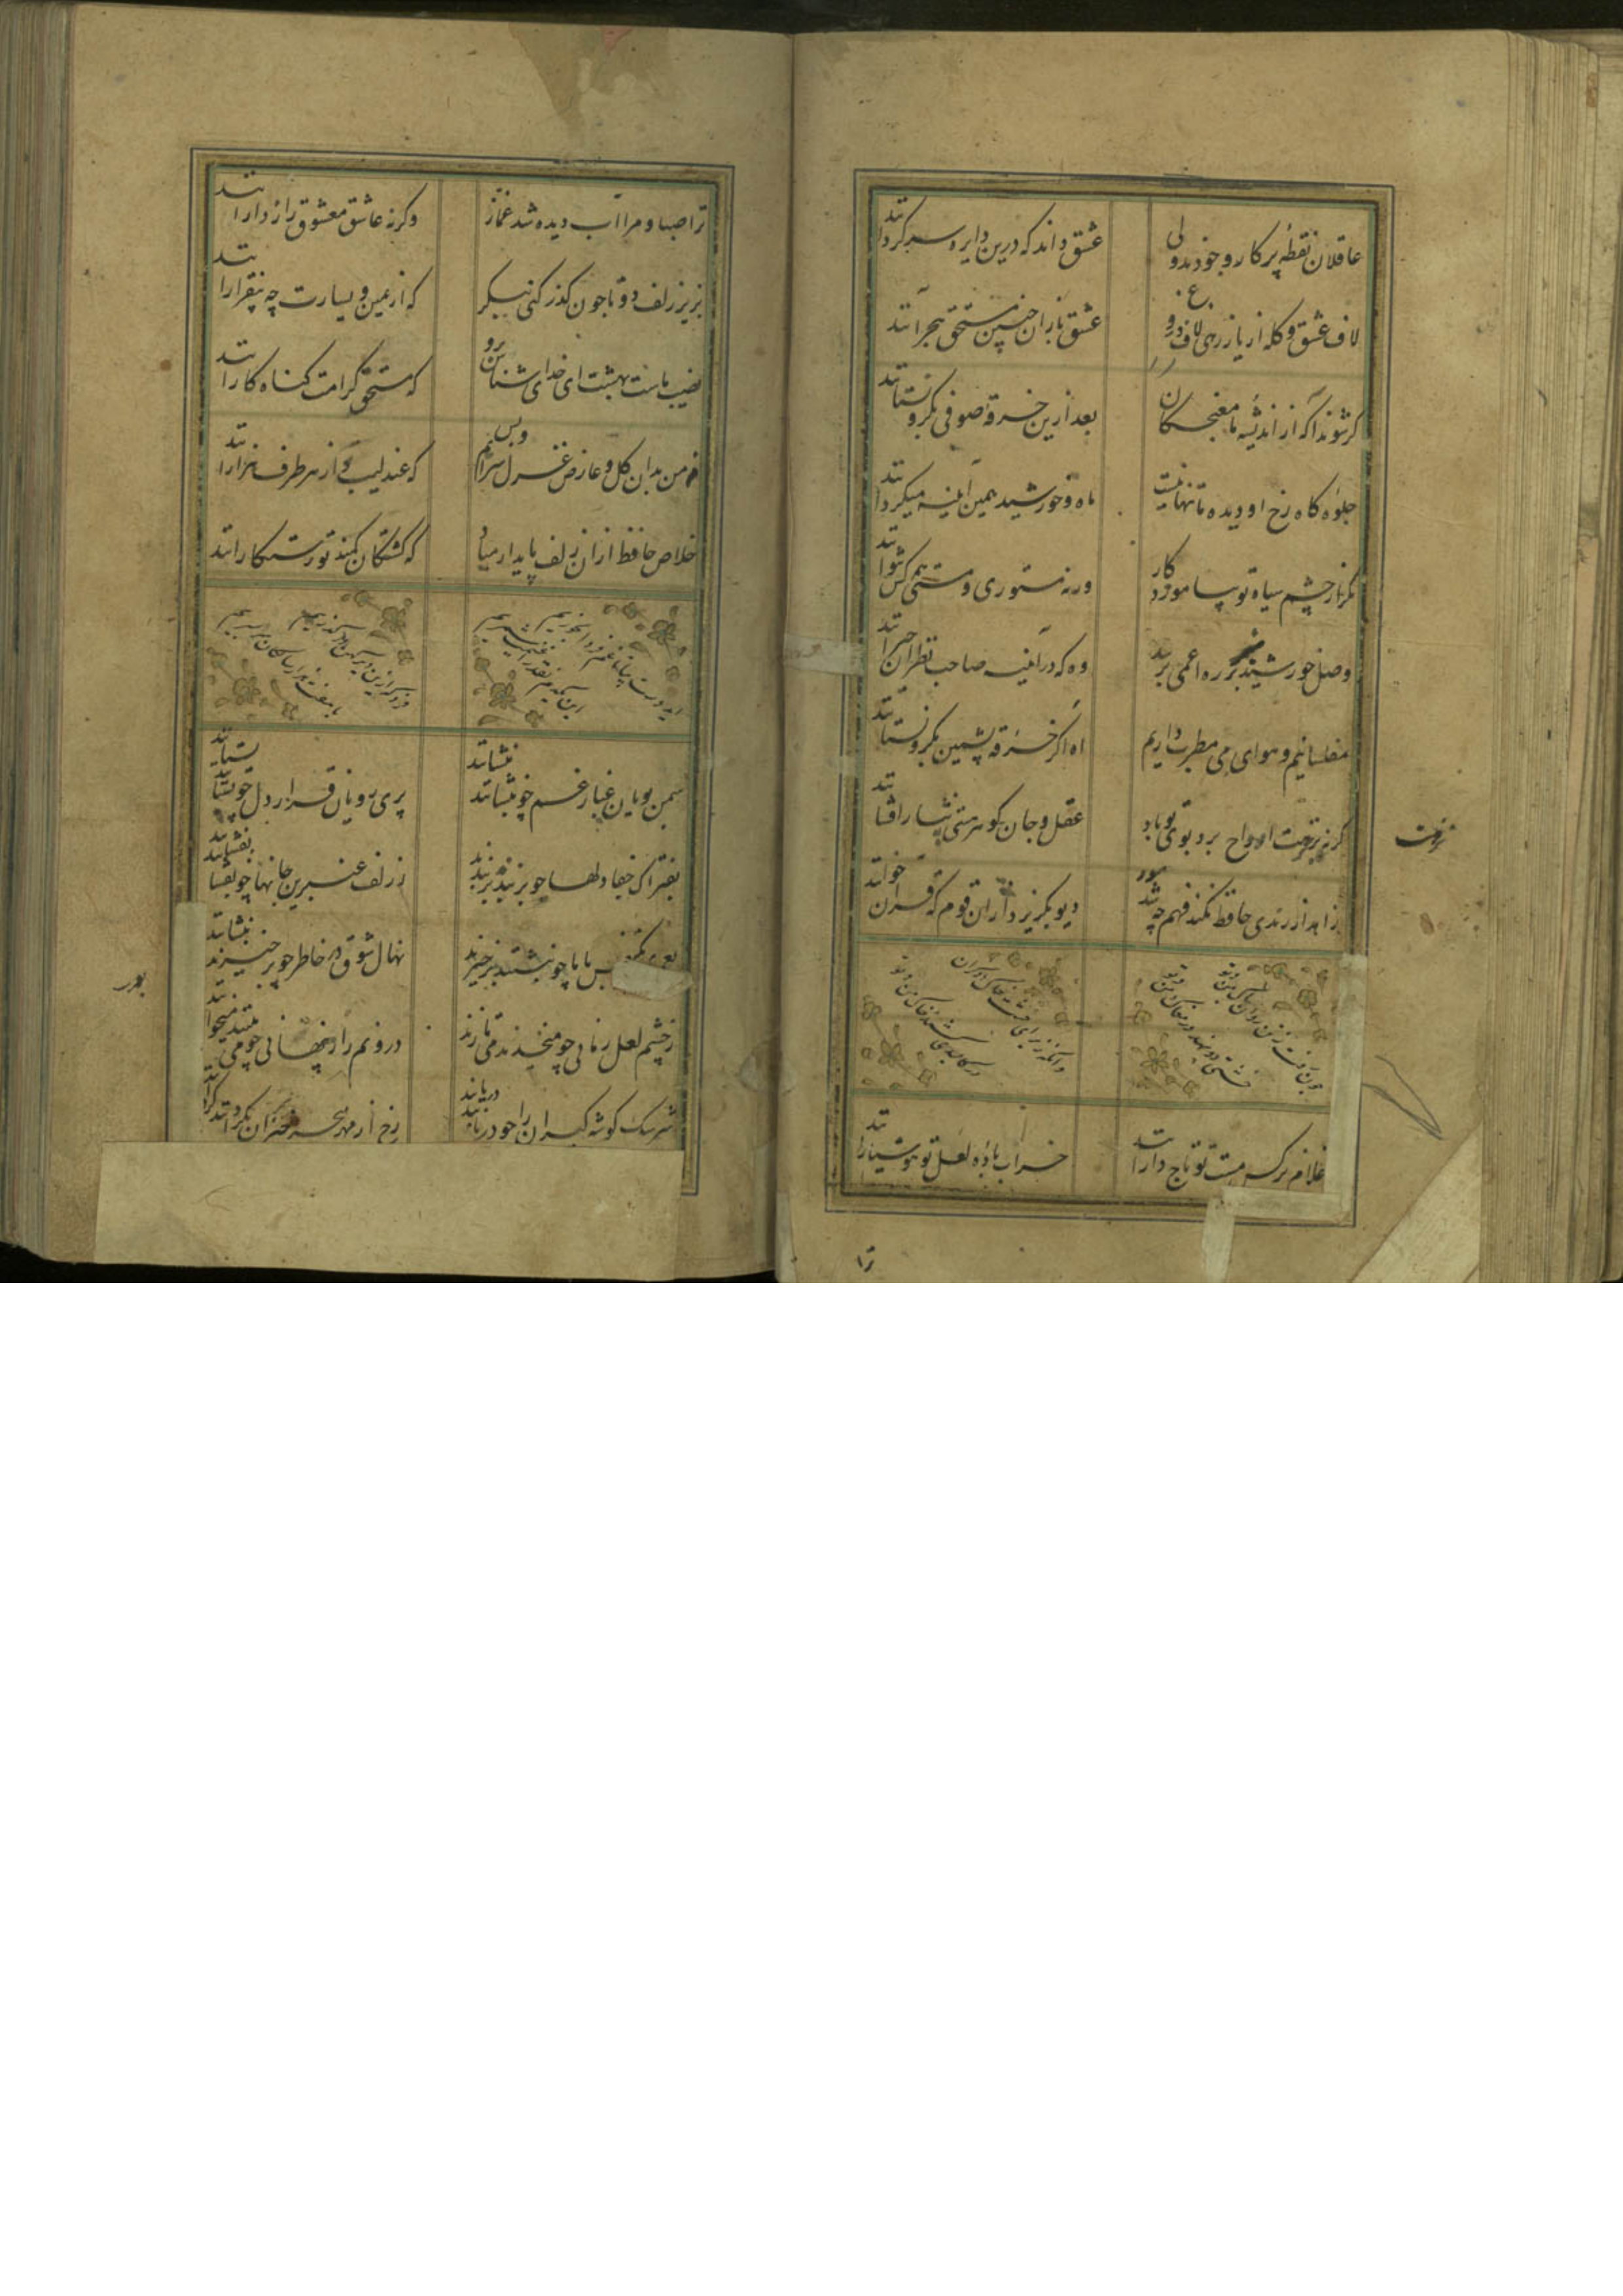 عاقلان نقطهٔ پرکار وجودند ولی عشق داند که درین دایره سرکردانند
لاف عشق و کله از یار زهی لاف دروغ عشق بازان چنین مستحق هجرانند
کر شوند آکه از اندیشهٔ ما مغبچکان بعد ازین خرقهٔ صوفی بکرو نستانند
جلوه کاه رخ او دیده تنها نیست ماه و خورشید همین آینه میکردانند
مکرار چشم سیاه تو بیاموزد کار ورنه مستوری و مستی همه کس نتوانند
وصل خورشید بر ره اعمی نرسد وه که در آینه صاحب نظران حیرانند
مفلسانیم و هوای می و مطرب داریم اه اکر خرقه پشمین بکرو نستانند
کر بنزهت ارواح برد بوی تو باد عقل و جان کوهر هستی بنثار افشانند
نزهت
زاهد از رندی حافظ نکند فهم چه شد دیو بکریزد ازان قوم که قران خوانند
چون رفت ز تن روان پاک من و تو
خشتی دو نهند در مغاک من و تو
وانکه ز برای خشت خاک دکران
در کالبدی کشند خاک من و تو
غلام نرکس مست تو تاج دارانند خراب بادهٔ لعل تو هوشیارانند
ترا
ترا صبا و مرا آب دیده شد غماز وکرنه عاشق و معشوق رازدارانند
بزیر زلف دو تا چون کذر کنی بنکر که از یمین و یسارت چه بیقرارانند
نصیب ماست بهشت ای خدای شناس برو که مستحق کرامت کناه کارانند
نه من بدان کل و عارض غزل سرایم و بس که عندلیب تو از هر طرف هزارانند
خلاص حافظ ازان زلف پایدار مباد که کشتکان کمند تو رستکارانند
ای دوست بیا تا غم فردا نخوریم
این یکدم نقد را غنیمت شمریم
فردا که ازین دیر کهن درکذریم
با هفت هزار سالکان سر بسریم
سمن بویان غبار غم چو بنشینند بنشانند پری رویان قرار دل چو بستیزند بستانند
بفتراک جفا دلها چو بربندند بربندند ز زلف عنبرین جانها چو بفشانند بفشانند
بعمری یکنفس با ما چو بنشینند برخیزند نهال شوق در خاطر چو برخیزند بنشانند
ز چشمم لعل رمانی چو میخندند می بارند درونم راز پنهانی چو می بینند میخوانند
سرشک کوشه کیران را چو دریابند دریابند رخ از مهر سحر خیزان نکردانند کردانند